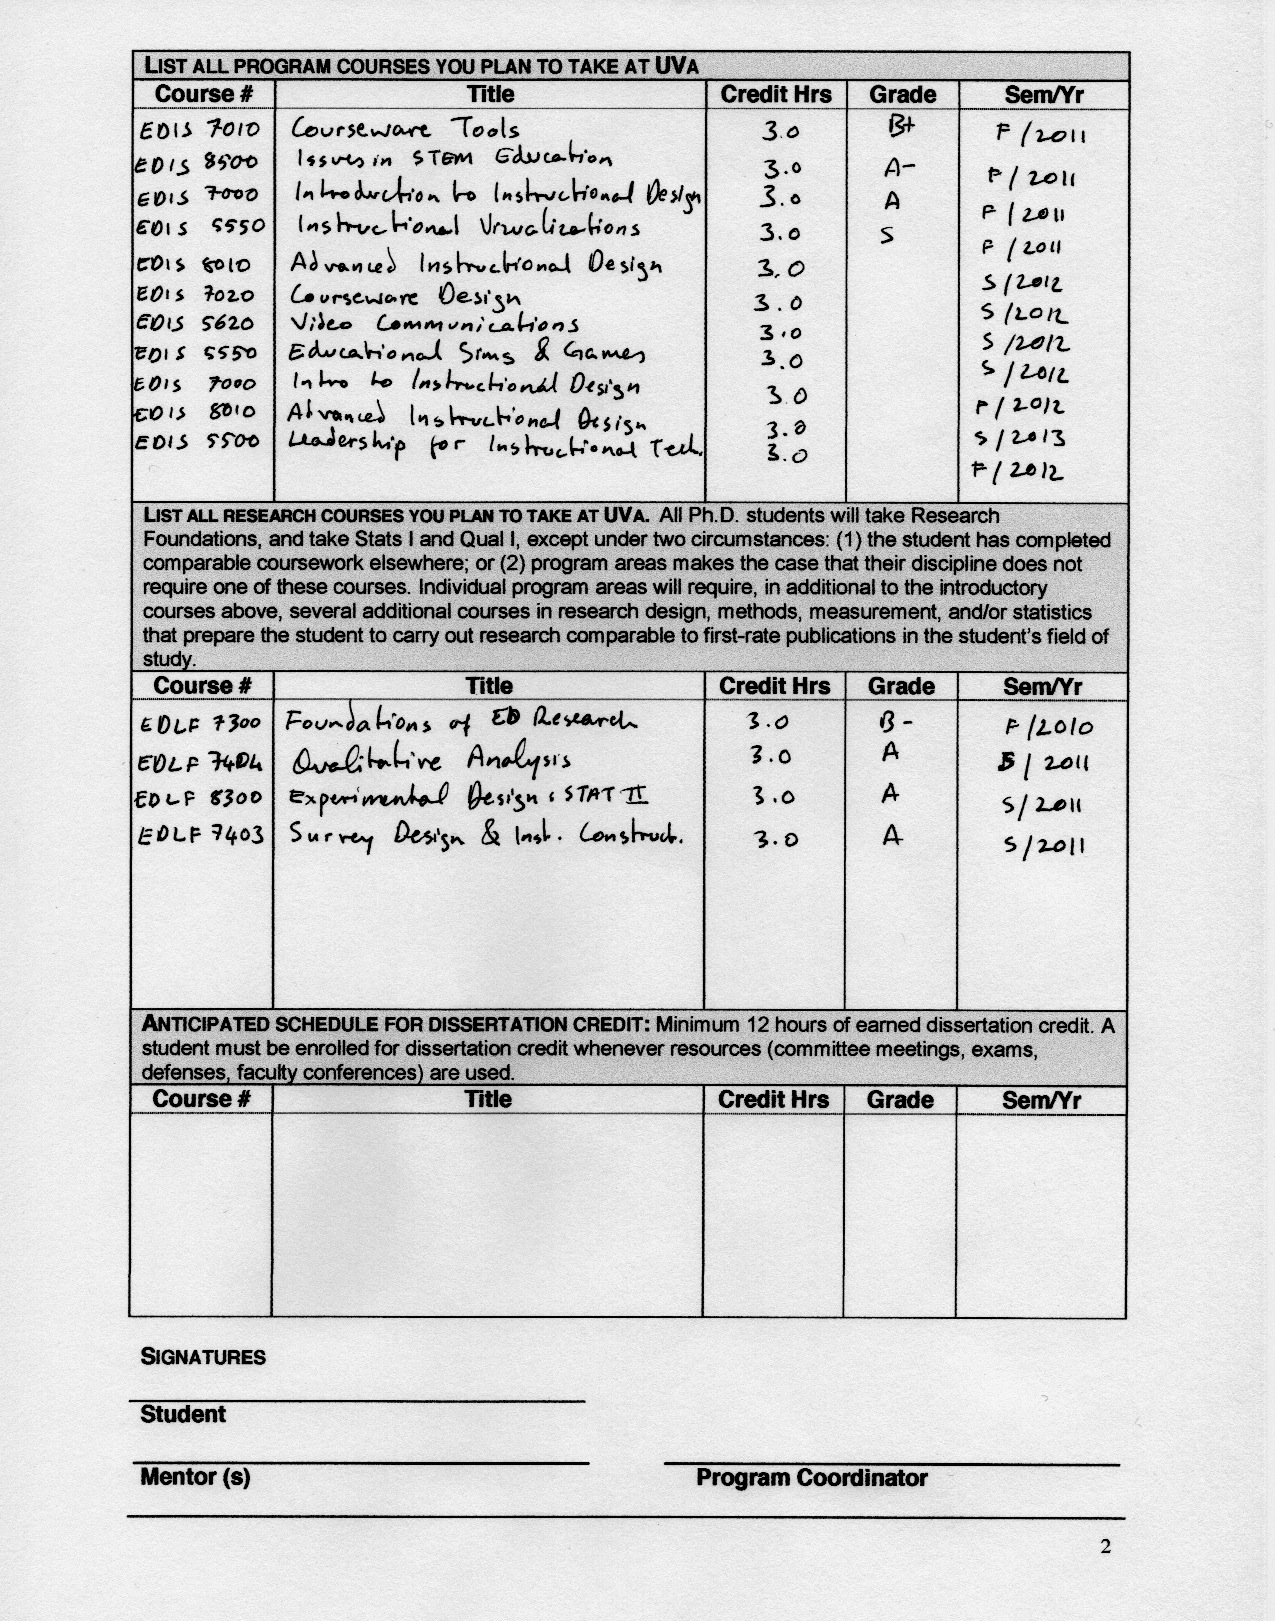 LIST ALL PROGRAM COURSES YOU PLAN TO TAKE AT UVA
Course # Title Credit Hrs Grade Sem/Yr
EDIS 7010 Courseware Tools 3.0 B+ F/2011
EDIS 8500 Issues in STEM Education 3.0 A- F/2011
EDIS 7000 Introduction to Instructional Design 3.0 A F/2011
EDIS 5550 Instructional Vizualizations 3.0 S F/2011
EDIS 8010 Advanced Instructional Design 3.0 S/2012
EDIS 7020 Courseware Design 3.0 S/2012
EDIS 5620 Video Communications 3.0 S/2012
EDIS 5550 Educational Sims & Games 3.0 S/2012
EDIS 7000 Intro to Instructional Design 3.0 F/2012
EDIS 8010 Advanced Instructional Design 3.0 S/2013
EDIS 5500 Leadership for Instructional Tech. 3.0 F/2012
LIST ALL RESEARCH COURSES YOU PLAN TO TAKE AT UVA. All Ph.D. students will take Research
Foundations, and take Stats I and Qual I, except under two circumstances: (1) the student has completed
comparable coursework elsewhere; or (2) program areas makes the case that their discipline does not
require one of these courses. Individual program areas will require, in additional to the introductory
courses above, several additional courses in research design, methods, measurement, and/or statistics
that prepare the student to carry out research comparable to first-rate publications in the student's field of
study.
Course # Title Credit Hrs Grade Sem/Yr
EDLF 7300 Foundations of ED Research 3.0 B- F/2010
EDLF 7404 Qualitative Analysis 3.0 A S/2011
EDLF 8300 Experimental Design : STAT II 3.0 A S/2011
EDLF 7403 Survey Design & Inst. Construct. 3.0 A S/2011
ANTICIPATED SCHEDULE FOR DISSERTATION CREDIT: Minimum 12 hours of earned dissertation credit. A
student must be enrolled for dissertation credit whenever resources (committee meetings, exams,
defenses, faculty conferences) are used.
Course # Title Credit Hrs Grade Sem/Yr
SIGNATURES
Student
Mentor (s) Program Coordinator
2